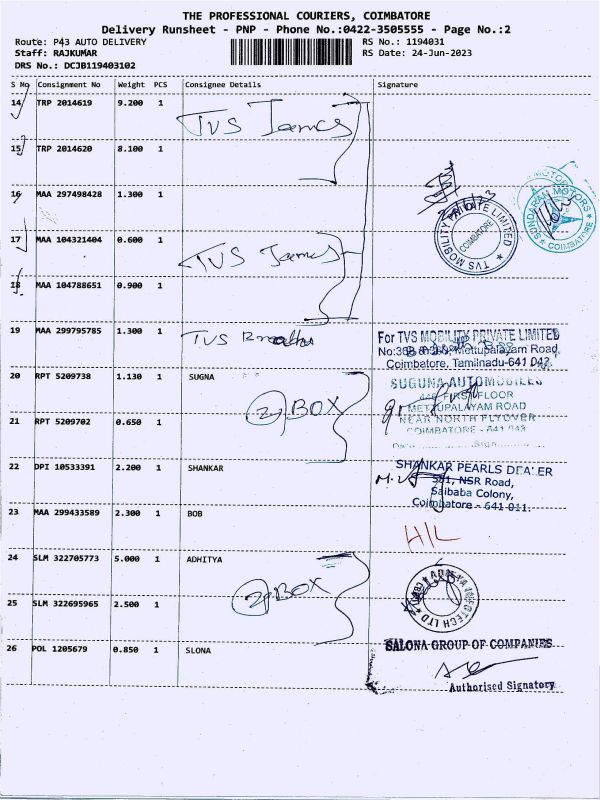 THE PROFESSIONAL COURIERS, COIMBATORE
Delivery Runsheet - PNP - Phone No.:0422-3505555 - Page No.:2
Route: P43 AUTO DELIVERY RS No.: 1194031
Staff: RAJKUMAR RS Date: 24-Jun-2023
DRS No.: DCJB119403102
S No Consignment No Weight PCS Consignee Details Signature
14 TRP 2014619 9.200 1 TVS James
15 TRP 2014620 8.100 1
16 MAA 297498428 1.300 1
TVS MOBILITY PRIVATE LIMITED COIMBATORE
SUNDARAM MOTORS COIMBATORE
17 MAA 104321404 0.600 1 TVS James
18 MAA 104788651 0.900 1
19 MAA 299795785 1.300 1 TVS
For TVS MOBILITY PRIVATE LIMITED
Mettupalayam Road,
Coimbatore, Tamilnadu-641 043.
20 RPT 5209738 1.130 1 SUGNA
2 BOX
SUGUNA AUTOMOBILES
FIRST FLOOR
METTUPALAYAM ROAD
NEAR NORTH FLYOVER
COIMBATORE - 641 043
21 RPT 5209702 0.650 1
22 DPI 10533391 2.200 1 SHANKAR
SHANKAR PEARLS DEALER
NSR Road,
Saibaba Colony,
Coimbatore - 641 011.
23 MAA 299433589 2.300 1 BOB
H/L
24 SLM 322705773 5.000 1 ADHITYA
2 BOX
25 SLM 322695965 2.500 1
26 POL 1205679 0.850 1 SLONA
SALONA GROUP OF COMPANIES
Authorised Signatory